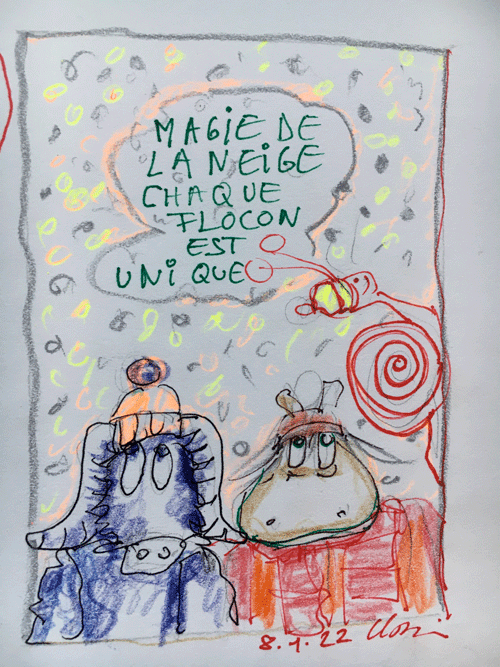 MAGIE DE
LA NEIGE
CHAQUE
FLOCON
EST
UNIQUE
8.1.22